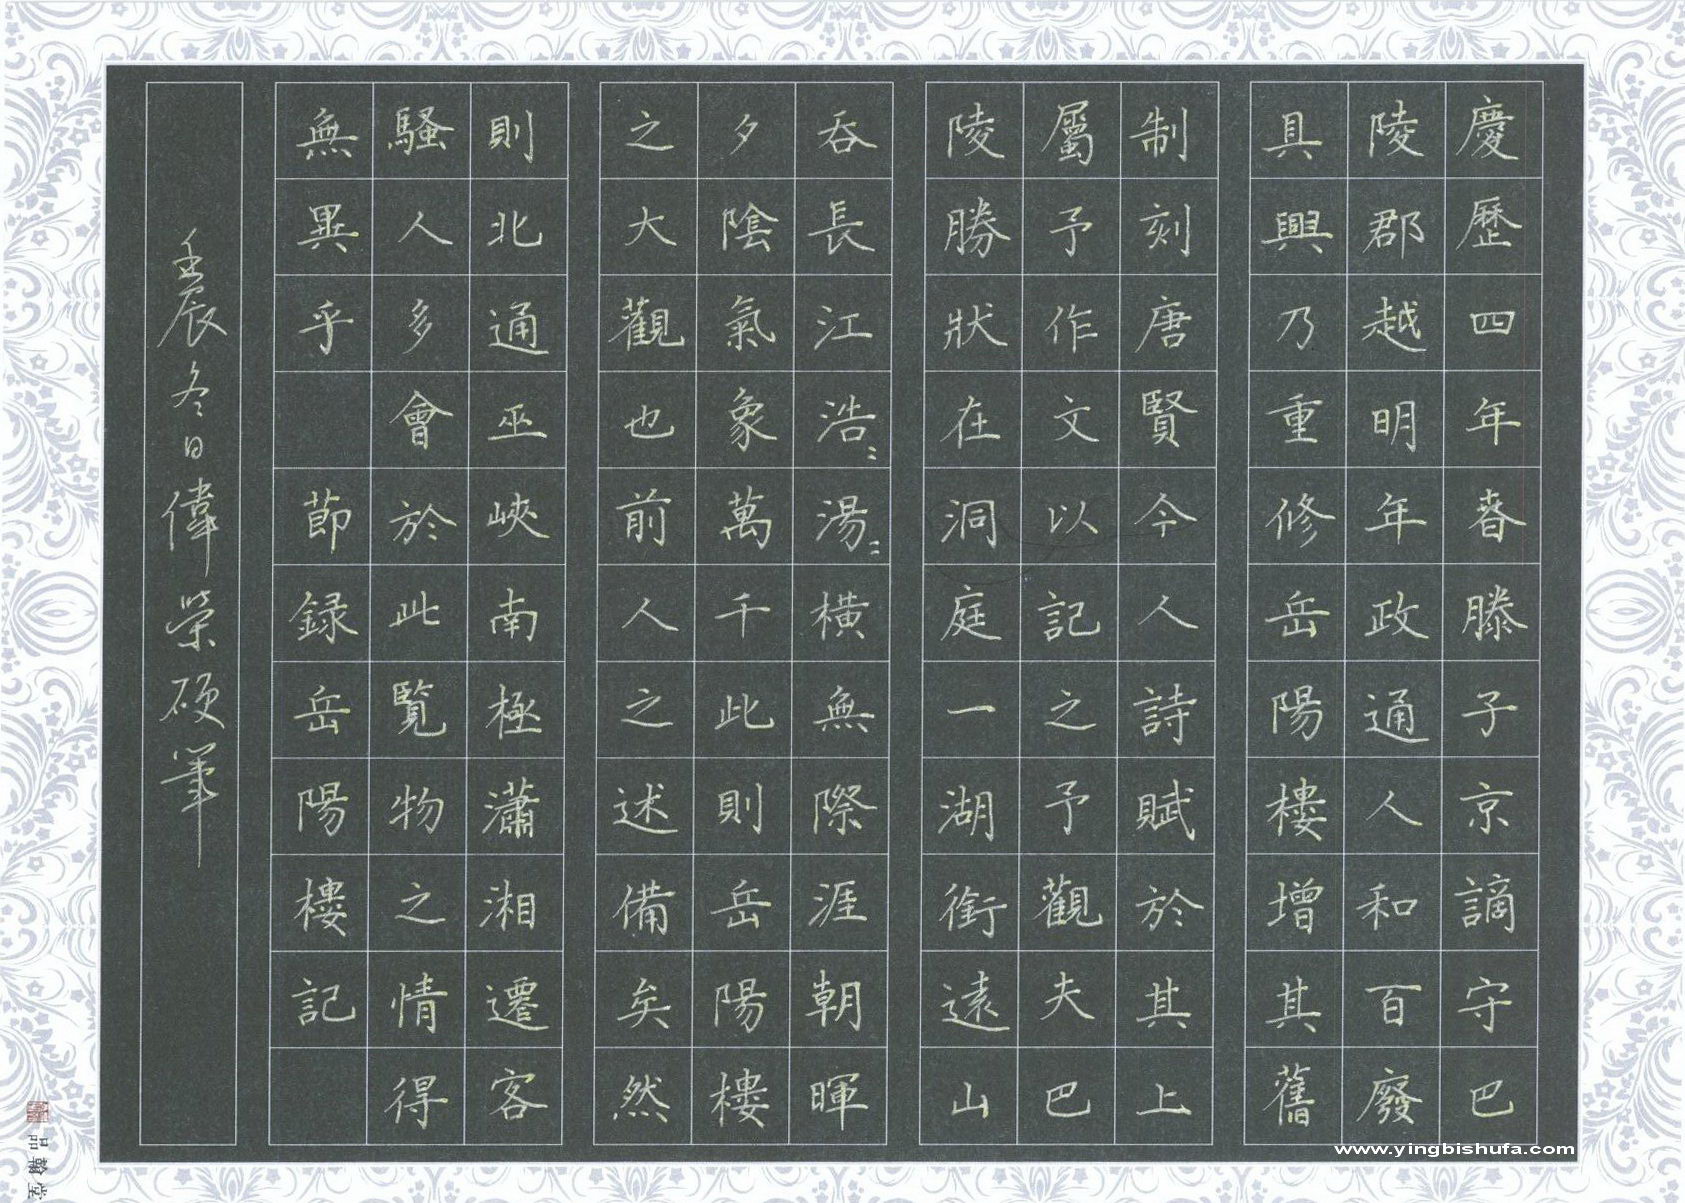 慶歷四年春滕子京謫守巴
陵郡越明年政通人和百廢
具興乃重修岳陽樓增其舊
制刻唐賢今人詩賦於其上
屬予作文以記之予觀夫巴
陵勝狀在洞庭一湖銜遠山
吞長江浩〻湯〻橫無際涯朝暉
夕陰氣象萬千此則岳陽樓
之大觀也前人之述備矣然
則北通巫峽南極瀟湘遷客
騷人多會於此覽物之情得
無異乎 節錄岳陽樓記
壬辰冬日偉榮硬筆
品翰堂
www.yingbishufa.com